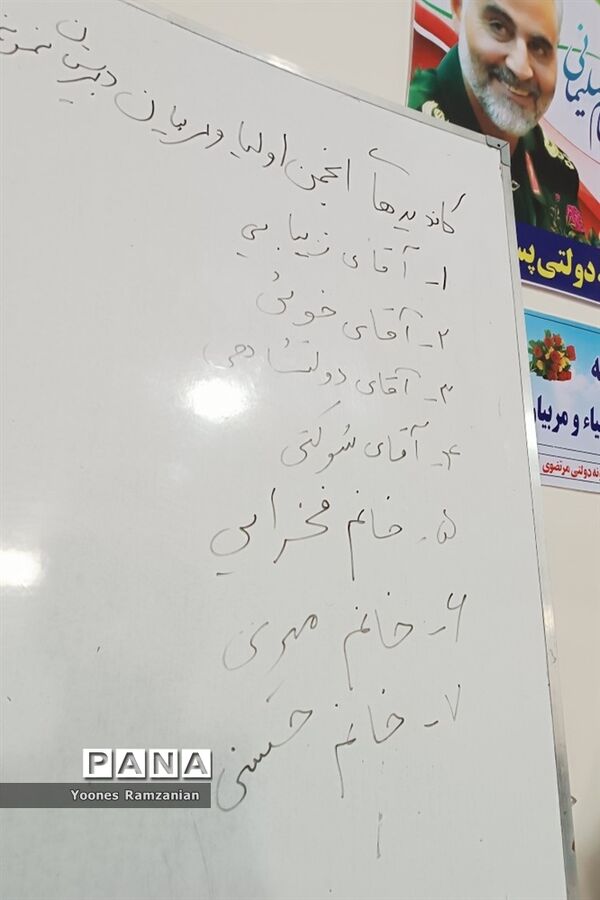 کاندیدهای انجمن اولیا و مربیان دبیرستان نمونه
۱- آقای زیبایی
۲- آقای خوئی
۳- آقای دولتشاهی
۴- آقای شوکتی
۵- خانم فخرایی
۶- خانم مهری
۷- خانم حسنی
سلیمانی
ه دولتی پس
یاء و مربیان
ونه دولتی مرتضوی
PANA
Yoones Ramzanian